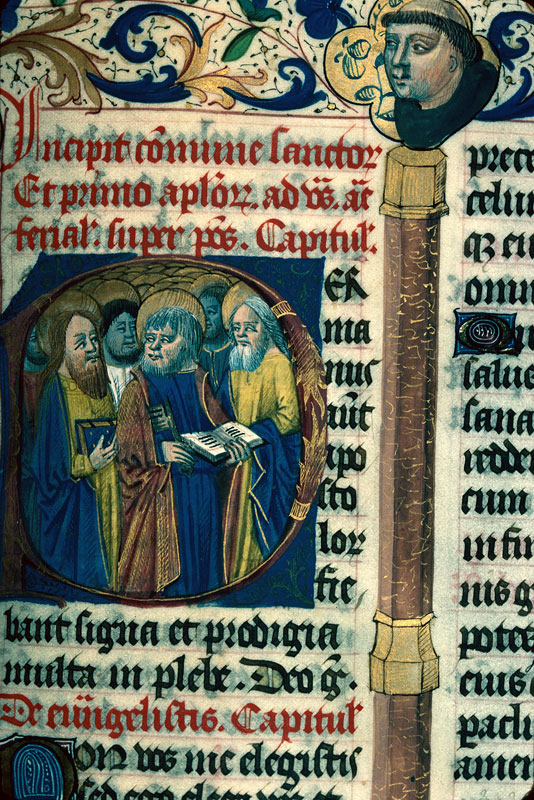 Incipit cõmune sanctor
Et primo aplõrꝝ. ad vs̃. at̃
ferial'. super ps̃. Capitul'.
PER
ma
nus
aũt
apo
sto
lor
fie
bant signa et prodigia
multa in plebe. Deo gr̃.
De euãngelistis. Capitul'
NON vos me elegistis
sed ego elegi vos et
prece
celum
qꝫ
omni
salue
sana
redde
cum
in fin
nis g
potes
eius
pacli
amen